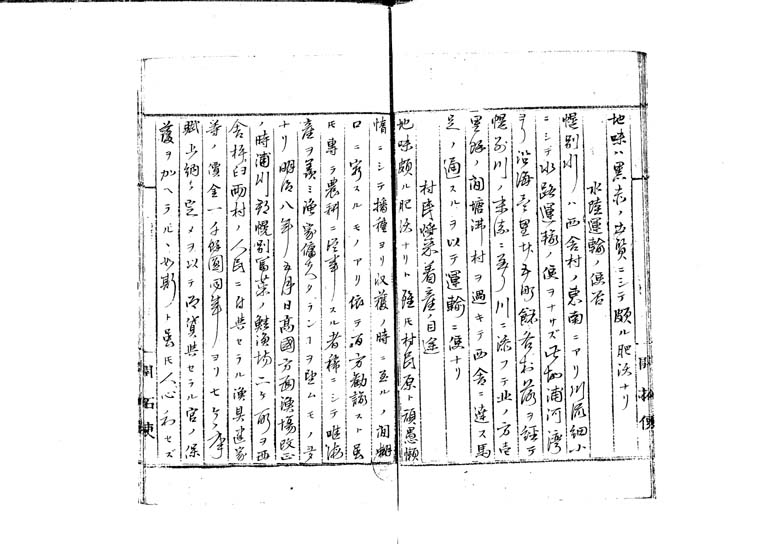 地味ハ黒赤ノ出質ニシテ頗ル肥沃ナリ
水陸運輸ノ便否
幌別川ハ西舎村ノ東南ニアリ川流細小
ニシテ水路運輸ノ便ヲナサズ
沿海壱里廿五町餘
幌別川ノ末流ニ至リ川ニ添フテ
里餘ノ間塘沸村ヲ過キテ西舎ニ達ス馬
足ノ通スルヲ以テ運輸ニ便ナリ
村民將来着産ノ目途
地味頗ル肥沃ナリト雖モ村民原ト頑愚懶
惰ニシテ播種ヨリ収獲ノ時ニ至ルノ間糊
口ニ窮スルモノアリ依テ百方勧諭スト虽
モ専ラ農耕ニ従事スル者稀ニシテ唯海
産ヲ羨ミ漁家傭夫タランヿヲ望ムモノ多
ナリ明治八年五月日高國方面漁場改正
ノ時浦川郡幌別冨菜ノ鮭漁場二ケ所ヲ西
舎杵臼両村ノ人民ニ付与セラル漁具建家
等ノ價金一千餘圓同年ヨリ七ケ年
賦上納ノ定メヲ以テ而貸與セラル官ノ保
護ヲ加ヘラルヽ如斯ト虽モ人心和セズ
開拓使
開拓使